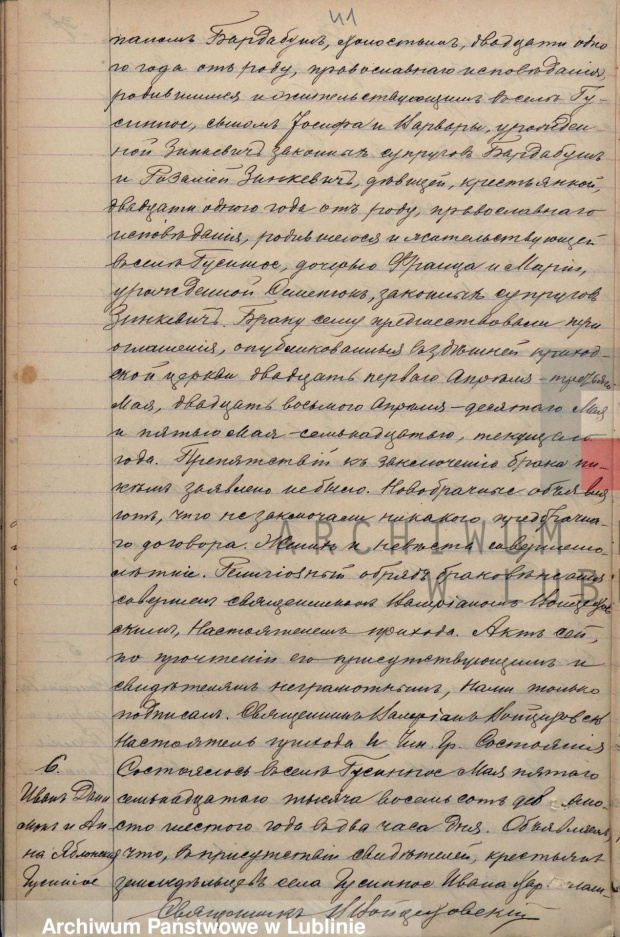 41
паномъ Бардабушъ, холостымъ, двадцати одно
го года отъ роду, православнаго исповѣданія,
родившимся и жительствующимъ въ селѣ Гу-
синное, сыномъ Іосифа и Варвары, урожден
ной Зинкевичъ законныхъ супруговъ Бардабушъ
и Розаліей Зинкевичъ, дѣвицей, крестьянкой,
двадцати одного года отъ роду, православнаго
исповѣданія, родившеюся и жительствующей
въ селѣ Гусинное, дочерью Франца и Маріи,
урожденной Семенюкъ, законныхъ супруговъ
Зинкевичъ. Браку сему предшествовали три
оглашенія, опубликованныя въ здѣшней приход-
ской церкви двадцать перваго Апрѣля - третьяго
Мая, двадцать восьмого Апрѣля - десятаго Мая
и пятаго Мая - семьнадцатаго, текущаго
года. Препятствій къ заключенію брака ни-
кѣмъ заявлено не было. Новобрачные объявля
ютъ, что не заключали никакого предбрачна-
го договора. Женихъ и невѣста совершенно-
лѣтніе. Религіозный обрядъ бракосочетанія
совершенъ священникомъ Валеріаномъ Войцеховскимъ
скимъ, Настоятелемъ прихода. Актъ сей,
по прочтеніи его присутствующимъ и
свидѣтелямъ неграмотнымъ, Нами только
подписанъ. Священникъ Валеріанъ Войцеховскій
Настоятель прихода и Чин. Гр. Состоянія
6.
Иванъ
и Ан
на Яблонская
Гусинное
Состоялось въ селѣ Гусинное Мая пятаго
семьнадцатаго тысяча восемьсотъ девяно
сто шестого года въ два часа дня. Объявляемъ,
что, въ присутствіи свидѣтелей, крестьянъ
земледѣльцевъ села Гусинное Ивана
Священникъ Войцеховскій
ARCHIWUM
W LUBL
Archiwum Państwowe w Lublinie